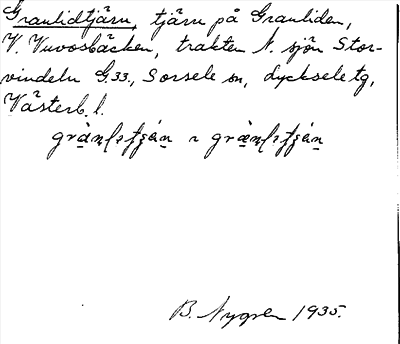 Granlidtjärn, tjärn på Granliden,
V. Vuvosbäcken, trakten N. sjön Stor-
vindeln G.33., Sorsele sn, Lycksele tg,
Västerb. l.
B. Nygren 1935.